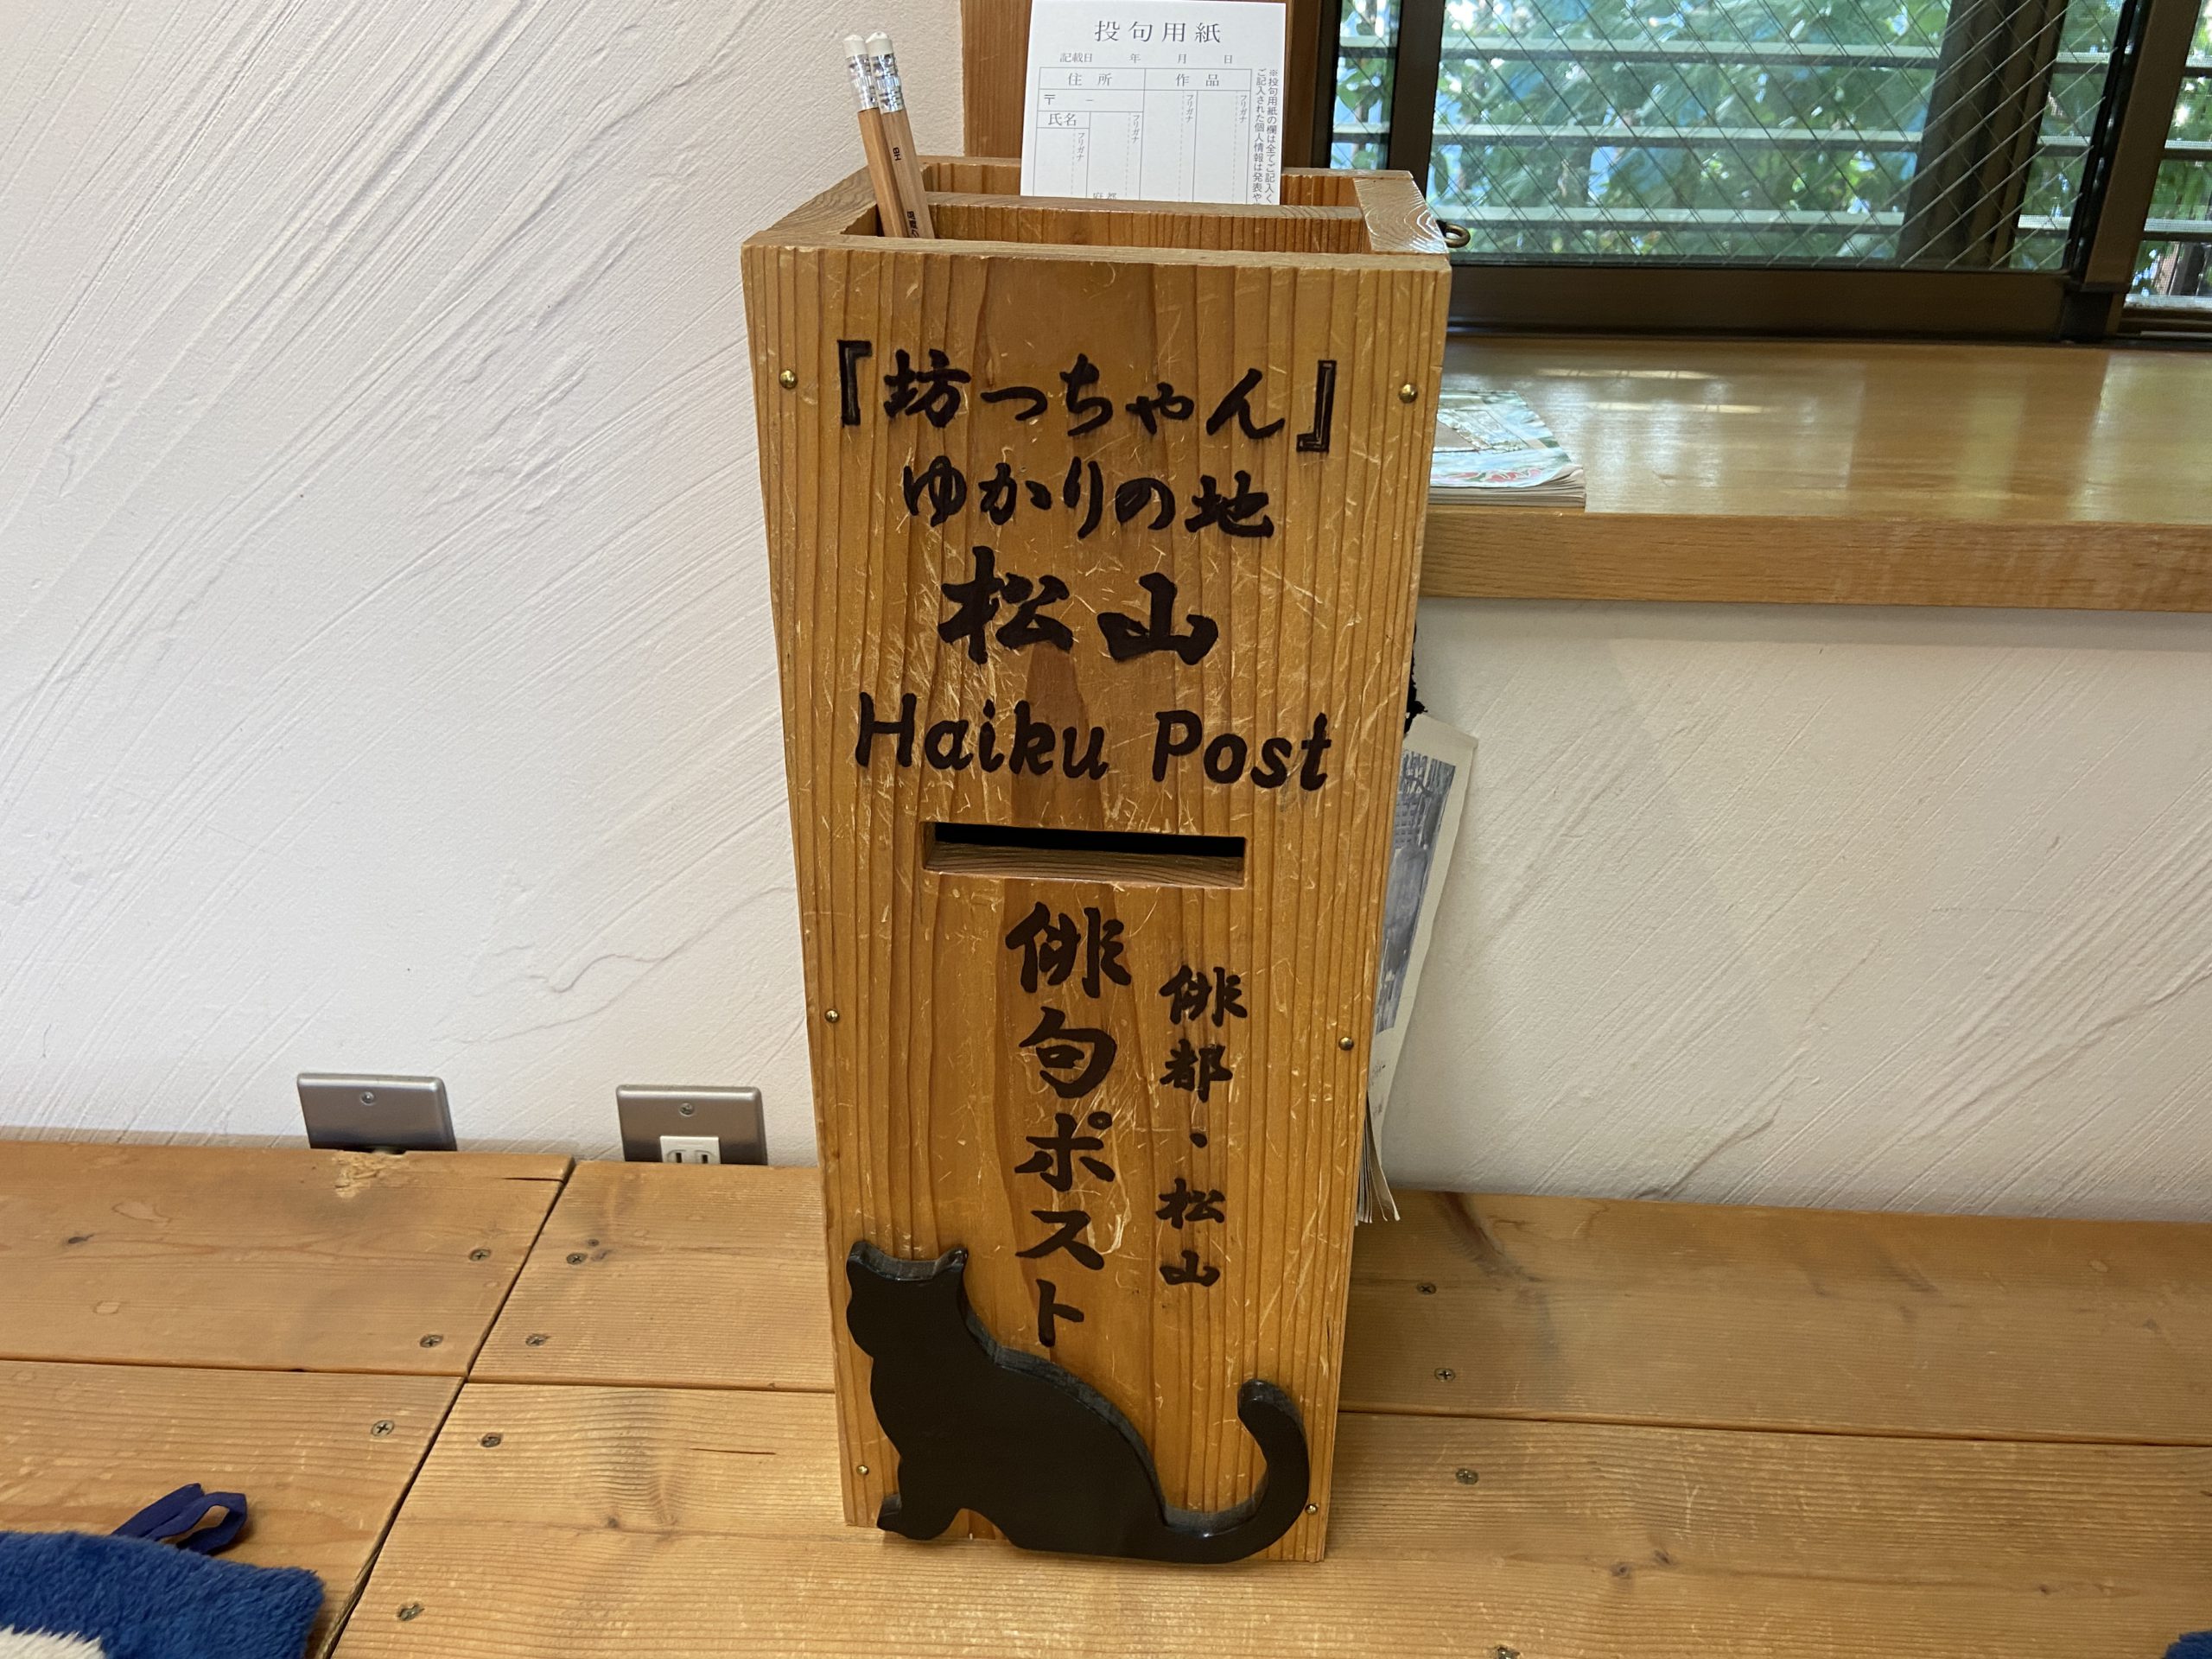 投句用紙
記載日 年 月 日
住所 作品
〒 －
氏名
フリガナ
フリガナ
フリガナ
フリガナ
※投句用紙の欄は全てご記入く
ご記入された個人情報は発表や
『坊っちゃん』
ゆかりの地
松山
Haiku Post
俳都・松山
俳句ポスト